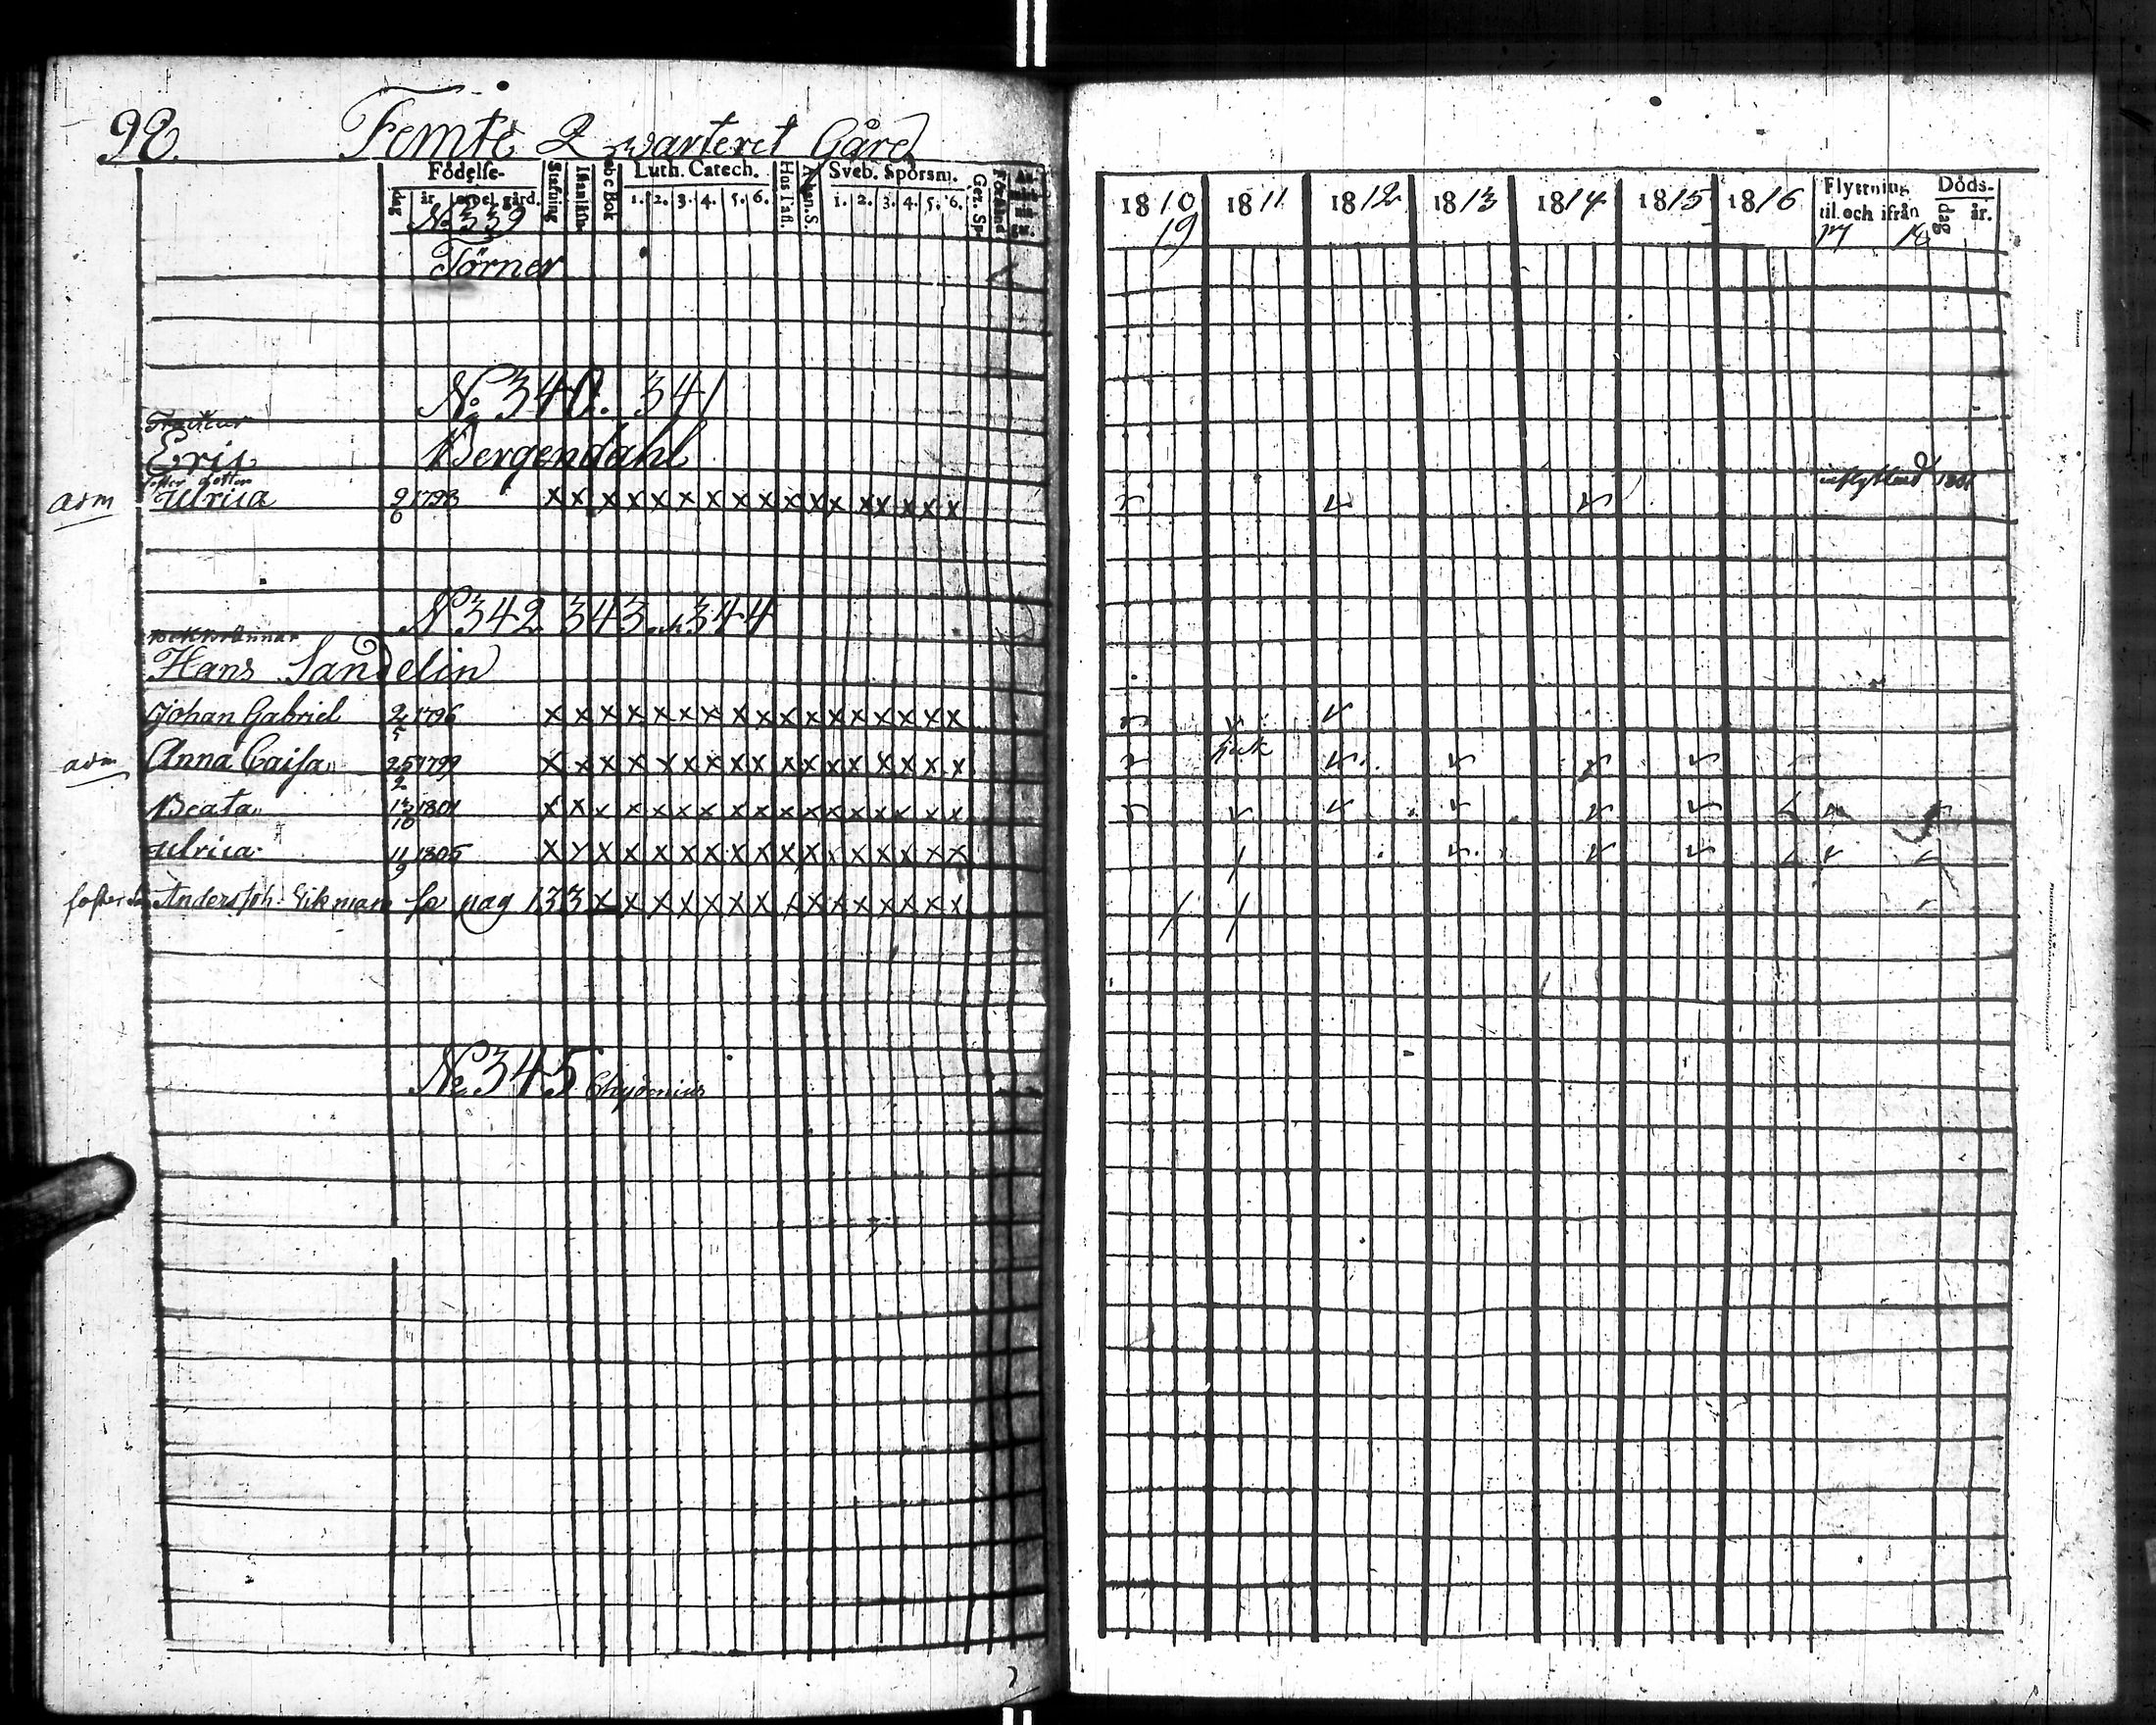 98.
Femte Qwarteret Gård
Födelse-
dag år ort el. gård.
Stafning
Innanläsn.
abc Bok
Luth. Catech.
1. 2. 3. 4. 5. 6.
Hus Tafl.
Athan. S.
Sveb. Spörsm.
1. 2. 3. 4. 5. 6.
Gez. Sp.
Förstånd
No 339
Törner
No 340. 341
Tracteur
Eric Bergendahl
foster dotter
adm Ulrica 9/6 1793 x x x x x x x x x x x x x x x x x
N 342 343 och 344
Hans Sandelin
Johan Gabriel 24/5 1796 x x x x x x x x x x x x x x x x x
adm Anna Caisa 25/2 1799 x x x x x x x x x x x x x x x x x
Beata 13/10 1801 x x x x x x x x x x x x x x x x x
Ulrica 11/9 1805 x x x x x x x x x x x x x x x x x
foster Anders Joh. Eikman se pag 133 x x x x x x x x x x x x x x x
No 345
1810 1811 1812 1813 1814 1815 1816
Flyttning til och ifrån
Döds-
dag år.
19 17 18
inflyttad 1801
sjuk